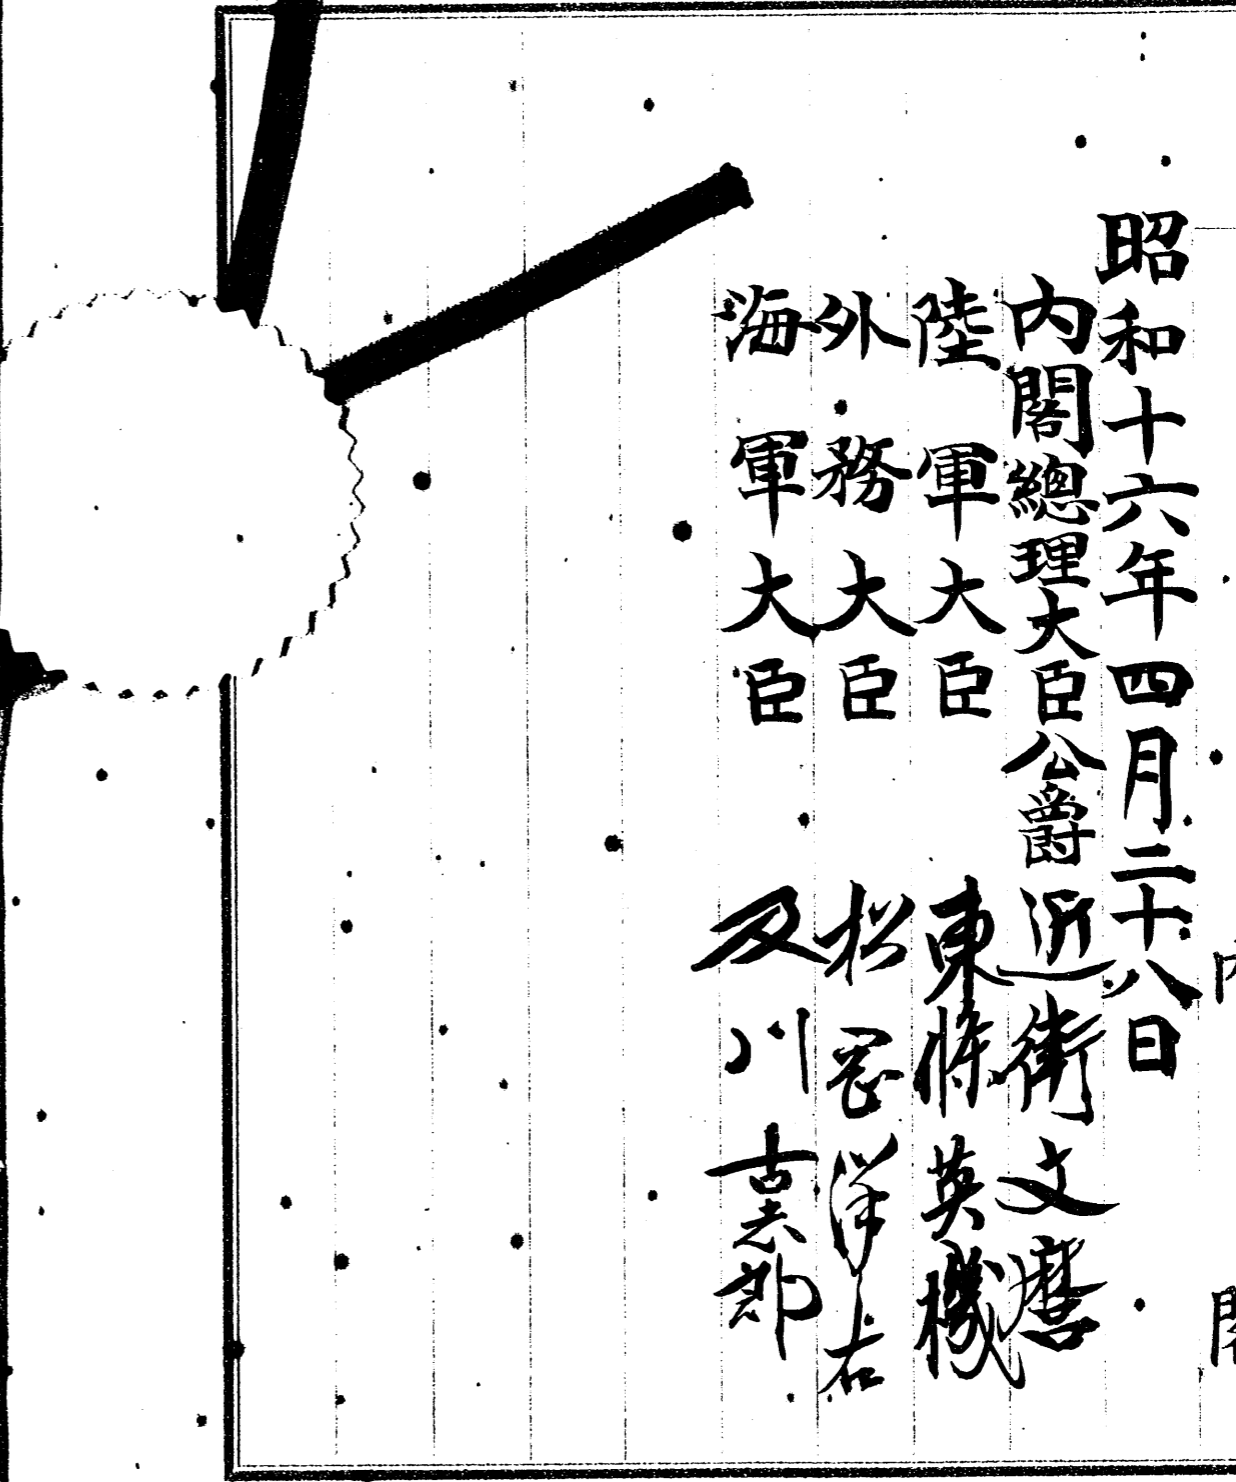 内閣
昭和十六年四月二十八日
内閣總理大臣公爵近衛文麿
陸軍大臣 東條英機
外務大臣 松岡洋右
海軍大臣 及川古志郎